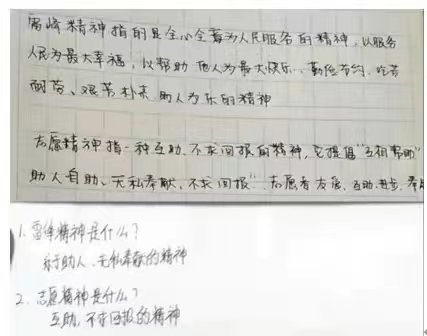 雷峰精神指的是全心全意为人民服务的精神，以服务
人民为最大幸福，以帮助他人为最大快乐、勤俭节约、吃苦
耐劳、艰苦朴素、助人为乐的精神
志愿精神指一种互助、不求回报的精神，它提倡“互相帮助
助人自助、无私奉献、不求回报”。志愿者友爱、互助、进步、奉
1. 雷锋精神是什么？
乐于助人、无私奉献的精神
2. 志愿精神是什么？
互助，不求回报的精神